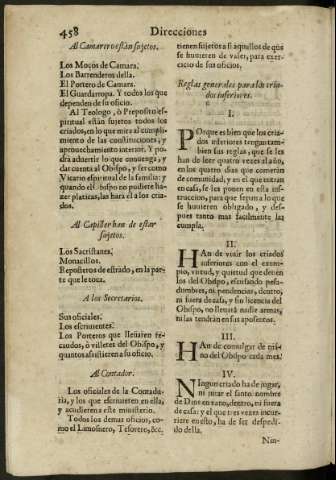 458
Direcciones
Al Camarero están sujetos.
Los Moços de Camara.
Los Barrenderos della.
El Portero de Camara.
El Guardarropa. Y todos los que
dependen de su oficio.
Al Teologo, ò Preposito es-
piritual están sujetos todos los
criados, en lo que mira al cumpli-
miento de las constituciones, y
aprovechamiento interior. Y po-
drà aduertir lo que conuenga, y
dar cuenta al Obispo, y ser como
Vicario espiritual de la familia: y
quando el Obispo no pudiere ha-
zer platicas, las harà el a los cria-
dos.
Al Capiller han de estar
sujetos.
Los Sacristanes.
Monacillos.
Reposteros de estrado, en la par-
te que le toca.
A los Secretarios.
Sus oficiales.
Los escriuientes.
Los Porteros que lleuaren re-
caudos, ò villetes del Obispo, y
quantos assistieren a su oficio.
Al Contador.
Los oficiales de la Contadu-
ria, y los que escriuieren en ella,
y acudieren a este ministerio.
Todos los demas oficios, co-
mo el Limosnero, Tesorero, &c.
tienen sujetos a si aquellos de quiē
se huuieren de valer, para exer-
cicio de sus oficios.
Reglas generales para los cria-
dos inferiores.
I.
POrque es bien que los cria-
dos inferiores tengan tam-
bien sus reglas, que se les
han de leer quatro vezes al año,
en los quatro dias que comerán
de comunidad, y en el que entran
en casa, se les ponen en esta ins-
truccion, para que sepan a lo que
se huuieren obligado, y des-
pues tanto mas facilmente las
cumpla.
II.
HAn de viuir los criados
inferiores con el exem-
plo, virtud, y quietud que deuen
los del Obispo, escusando pesa-
dumbres, ni pendencias, dentro,
ni fuera de casa, y sin licencia del
Obispo, no lleuarà nadie armas,
ni las tendràn en sus aposentos.
III.
HAn de comulgar de ma-
no del Obispo cada mes.
IV.
NIngun criado ha de jugar,
ni jurar el santo nombre
de Dios en vano, dentro, ni fuera
de casa: y el que tres vezes incur-
riere en esto, ha de ser despedi-
do della.
Nin-